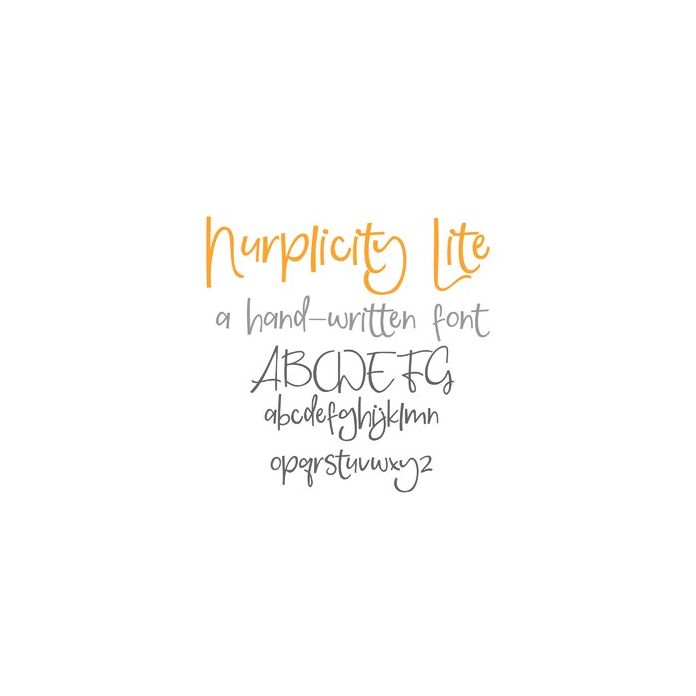 Nurplicity Lite
a hand-written font
ABCDEFG
abcdefghijklmn
opqrstuvwxyz